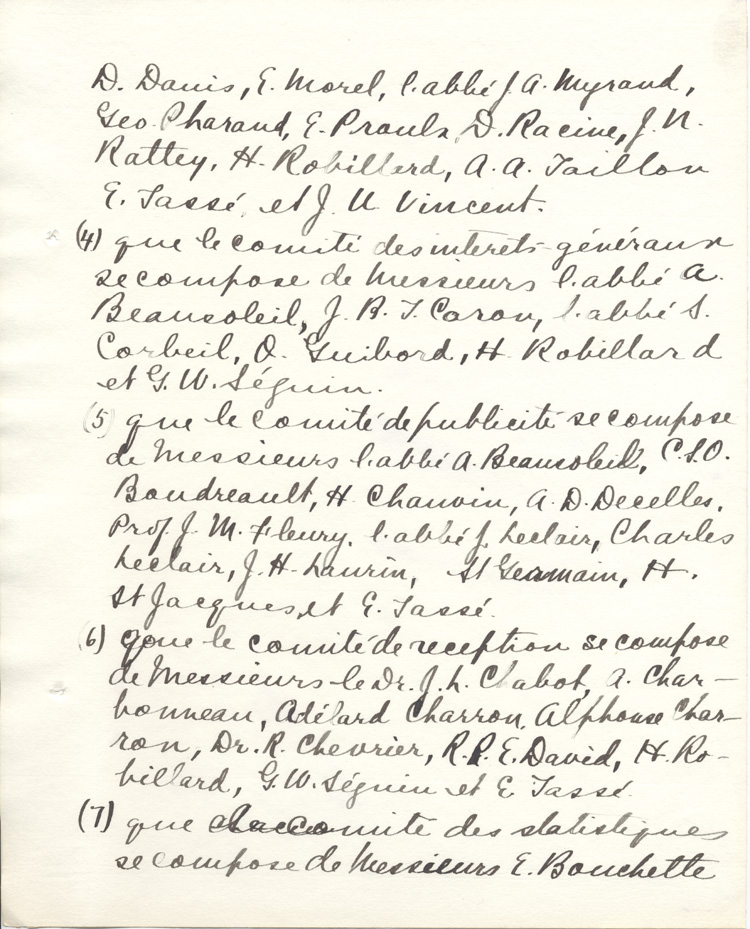 D. Danis, E. Morel, l'abbé J. A. Myrand,
Geo. Pharand, E. Proulx, D. Racine, J. N.
Rattey, H. Robillard, A. A. Taillon
E. Tassé, et J. U. Vincent.
(4) que le comité des interets généraux
se compose de Messieurs l'abbé A.
Beausoleil, J. B. T. Caron, l'abbé S.
Corbeil, O. Guibord, H. Robillard
et G. W. Séguin.
(5) que le comité de publicité se compose
de Messieurs l'abbé A. Beausoleil, C.S.O.
Boudreault, H. Chauvin, A. D. Decelles,
Prof. J. M. Fleury, l'abbé J. Leclair, Charles
Leclair, J. H. Laurin, St Germain, H.
St Jacques, et E. Tassé.
(6) que le comité de reception se compose
de Messieurs le Dr. J. L. Chabot, A. Char-
bonneau, Adélard Charron, Alphonse Char-
ron, Dr. R. Chevrier, R. P. E. David, H. Ro-
billard, G. W. Séguin et E. Tassé.
(7) que comité des statistiques
se compose de Messieurs E. Bouchette